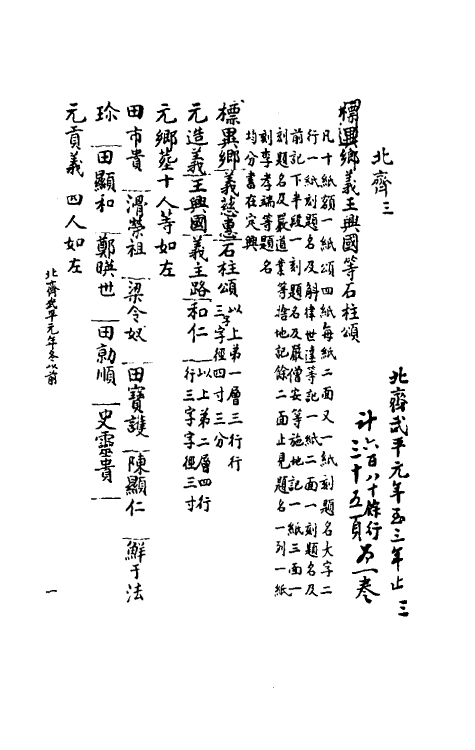 北齊武平元年至三年止 三
計六百八十餘行
三十五頁 為一卷
北齊三
標異鄉義王興國等石柱頌
凡十紙額一紙頌四紙每紙二面又一紙刻題名大字二
行一紙刻題名及斛律世達等記一紙二面一刻題名及
前記下半段一刻題名及嚴僧安等施地記一紙三面一
刻題名及嚴道業等捨地記餘二面止見題名一列一紙
刻李孝端等題名
均分書在定興
標異鄉義慈惠石柱頌 以上第一層三行行三字字徑四寸三分
元造義王興國義主路和仁 以上第二層四行行三字字徑三寸
元鄉葬十人等如左
田市貴 滑榮祖 梁令奴 田寶護 陳顯仁 鮮于法
珍 田顯和 鄭暎世 田勍順 史靈貴
元貢義 四人如左
北齊武平元年冬以前 一